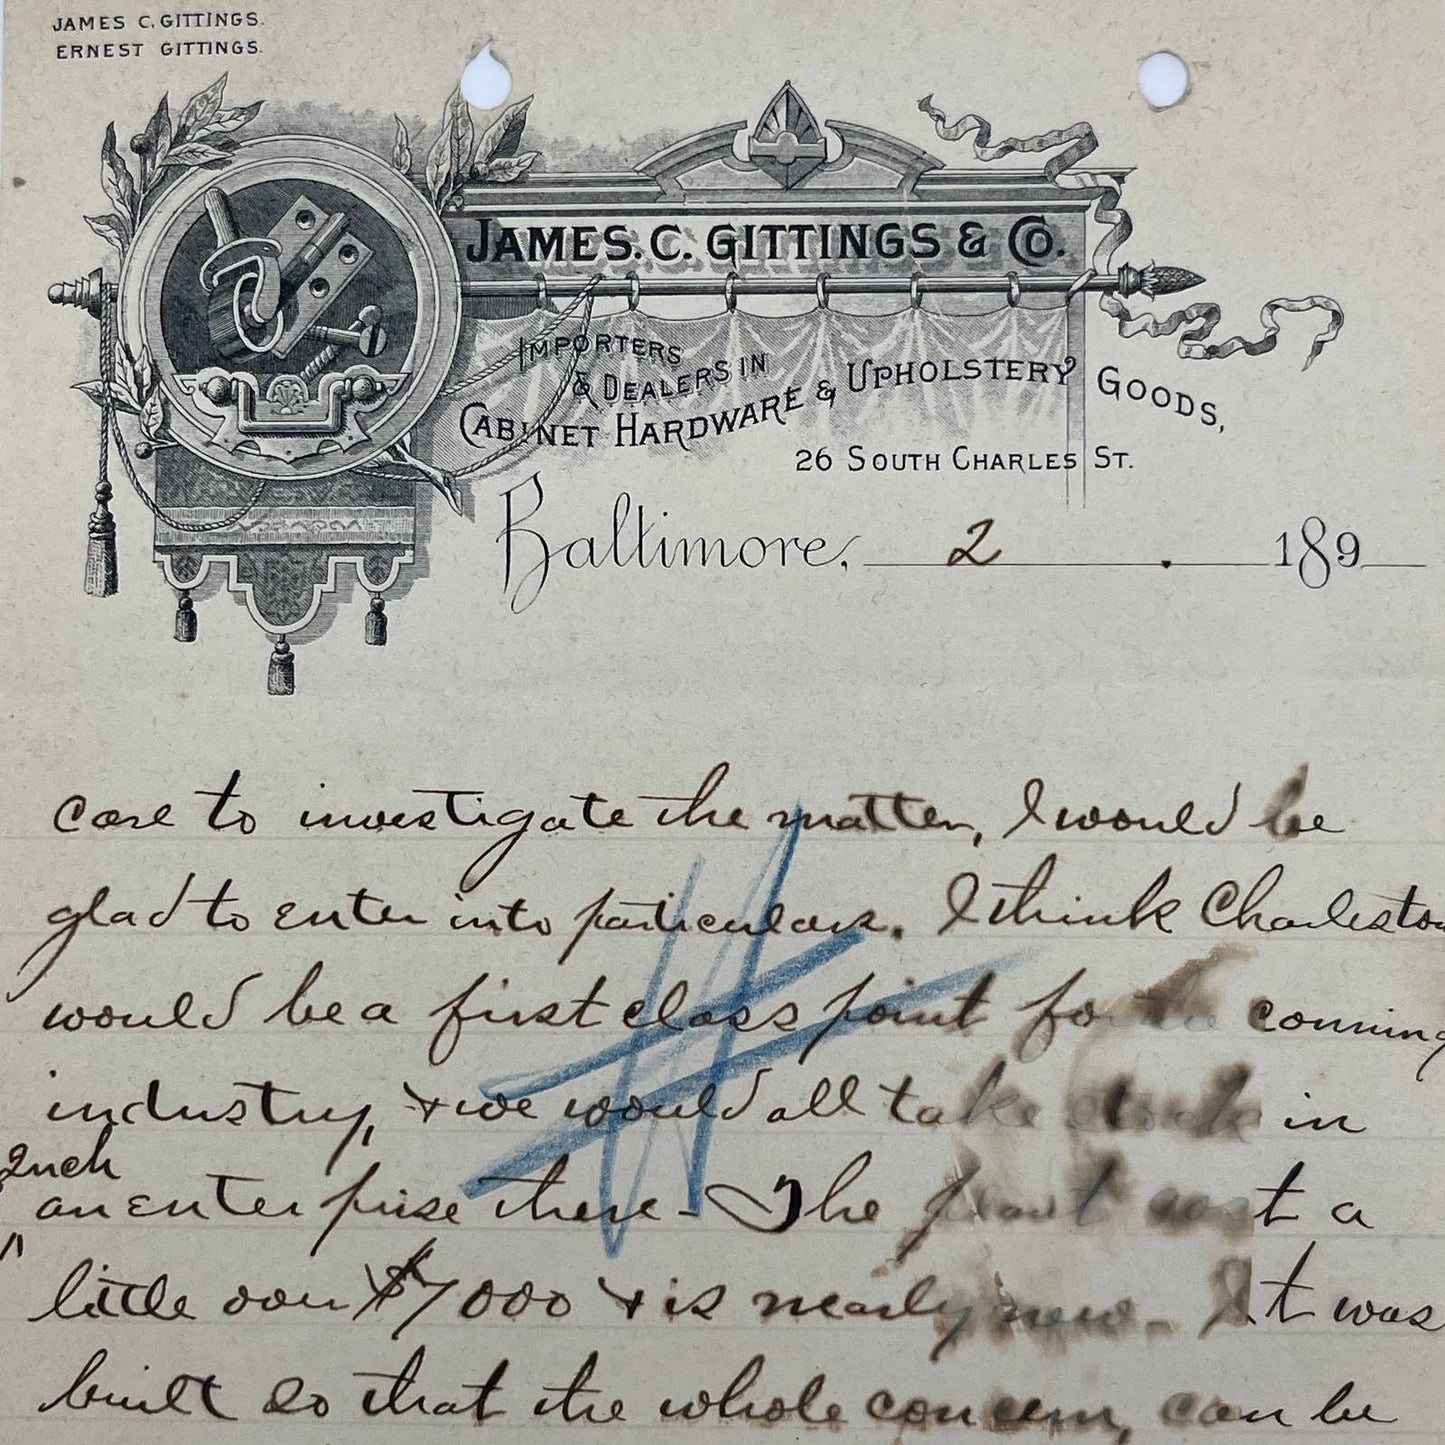 JAMES C. GITTINGS.
ERNEST GITTINGS.
JAMES. C. GITTINGS & CO.
IMPORTERS
& DEALERS IN
CABINET HARDWARE & UPHOLSTERY GOODS,
26 SOUTH CHARLES ST.
Baltimore, 2 . 189
care to investigate the matter, I would be
glad to enter into particulars. I think Charleston
would be a first class point for the conning
industry, & we would all take stock in
such
an enterprise there - The plant cost a
little over $7000 & is nearly new. It was
built so that the whole concern, can be